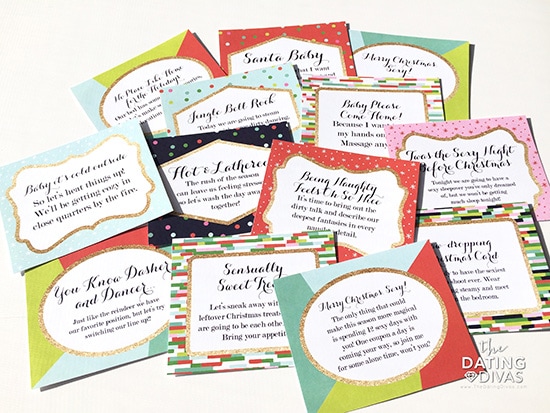 No Place Like Home
for the Holidays
Our bed has some
Santa Baby
what I want
Merry Christmas
Sexy!
Jingle Bell Rock
Today we are going to steam
dirty dancing.
Baby Please
Come Home!
Because I wan
my hands on
Massage any
Baby it's cold outside
So let's heat things up!
We'll be getting cozy in
close quarters by the fire.
Hot & Lathered
The rush of the season
can leave us feeling stress
so let's wash the day away
together!
Being Naughty
Feels So Nice
It's time to bring out the
dirty talk and describe our
deepest fantasies in every
naughty detail.
'Twas the Sexy Night
Before Christmas
Tonight we are going to have
a sexy sleepover you've only dreamed
of, but we won't be getting
much sleep tonight!
You Know Dasher
and Dancer
Just like the reindeer we have
our favorite position, but let's try
switching our line up!
Sensually
Sweet Trea
Let's sneak away with
leftover Christmas treats
are going to be each othe
Bring your appetit
Merry Christmas Sexy!
The only thing that could
make this season more magical
is spending 12 sexy days with
you. One coupon a day is
coming your way, so join me
for some alone time, won't you?
dropping
Christmas Card
to have the sexiest
shoot ever. Wear
steamy and meet
the bedroom.
the
DATING
DIVAS
www.TheDatingDivas.com